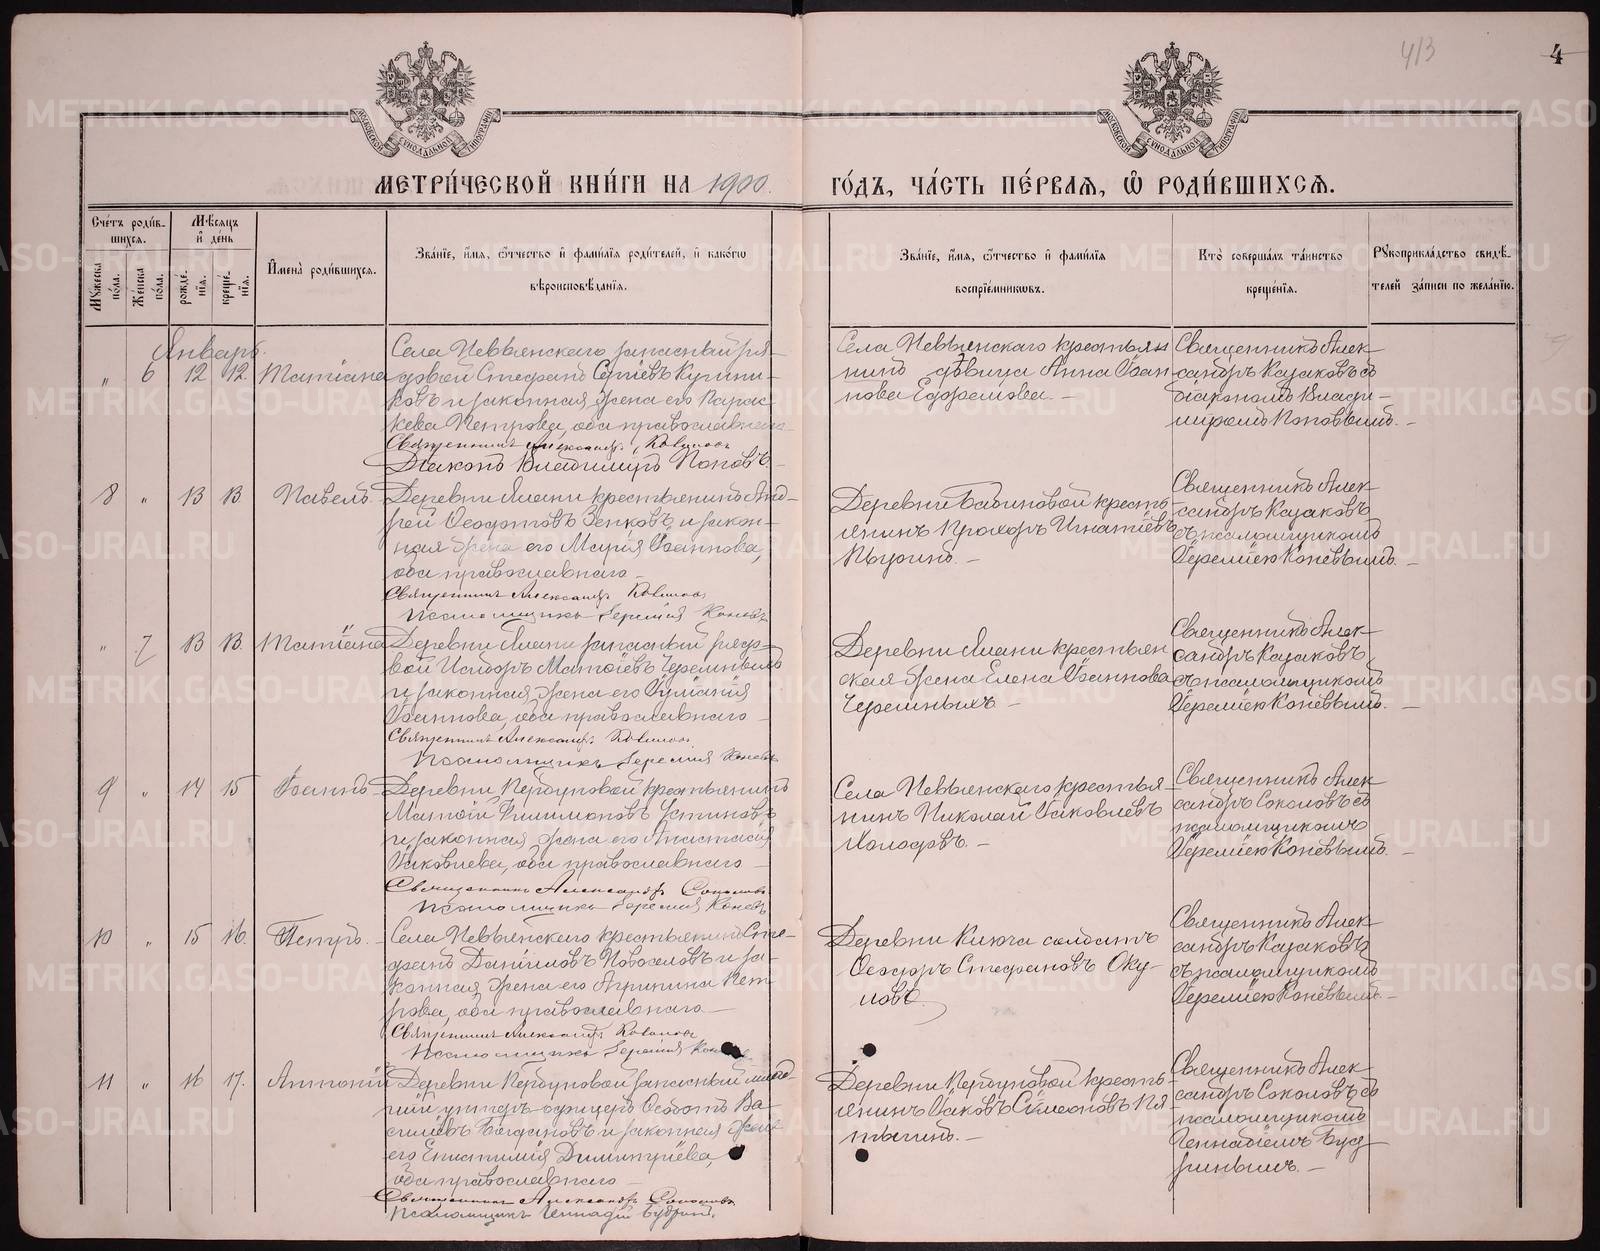 413
4
МЕТРИ́ЧЕСКОЙ КНИ́ГИ НА 1900
ГО́ДЪ, ЧА́СТЬ ПЕ́РВАЯ, Ѽ РОДИ́ВШИХСЯ.
Сче́тъ роди́в-
шихся.
Мꙋ́жеска по́ла.
Же́нска по́ла.
Мѣ́сяцъ и҆ де́нь
рожде́нїя.
креще́нїя.
И҆мена̀ роди́вшихся.
Зва́нїе, и҆́мя, ѻ҆́тчество и҆ фами́лїя роди́телей, и҆ како́гѡ
вѣроисповѣ́данїя.
Зва́нїе, и҆́мя, ѻ҆́тчество и҆ фами́лїя
воспрїе́мникѡвъ.
Кто̀ соверша́лъ та́инство
креще́нїя.
Рꙋкоприкла́дство свидѣ́-
телей за́писи по жела́нїю.
Январь.
„ 6 12 12 Татіана
Села Невьянскаго запасный ря-
довой Стефанъ Сергіевъ
и законная жена его Парас-
кева Петрова, оба православнаго
Священникъ Александръ
Діаконъ Владиміръ Поповъ
Села Невьянскаго крестьян
дѣвица Анна Іоан
нова Ефремова. –
Священникъ Алек-
сандръ Казаковъ съ
діакономъ Влади-
міромъ Поповымъ. –
8 „ 13 13 Павелъ
Деревни Ялани крестьянинъ Анд-
рей Ѳеодотовъ Зенковъ и закон-
ная жена его Марія Іоаннова,
оба православнаго –
Священникъ Александръ
Псаломщикъ Іеремія Коневъ
Деревни Бабиновой кресть-
янинъ Прохоръ Игнатіевъ
Священникъ Алек-
сандръ Казаковъ
съ псаломщикомъ
Іереміею Коневымъ. –
„ 7 13 13 Татіана
Деревни Ялани запасный рядо-
вой Исидоръ Матѳіевъ Черемныхъ
и законная жена его Іуліанія
Іоаннова, оба православнаго –
Священникъ Александръ
Псаломщикъ Іеремія Коневъ
Деревни Ялани крестьян
ская жена Елена Іоаннова
Черемныхъ –
Священникъ Алек-
сандръ Казаковъ
съ псаломщикомъ
Іереміею Коневымъ. –
9 „ 14 15 Іоаннъ
Деревни Первуновой крестьянинъ
Матѳій Филимоновъ Устиновъ
и законная жена его Анастасія
Іаковлева, оба православнаго –
Священникъ Александръ Соколовъ
Псаломщикъ Іеремія Коневъ
Села Невьянскаго крестья-
нинъ Николай Іаковлевъ
Молодовъ. –
Священникъ Алек-
сандръ Соколовъ съ
псаломщикомъ
Іереміею Коневымъ. –
10 „ 15 16. Петръ. –
Села Невьянскаго крестьянинъ Сте-
фанъ Даніиловъ Новоселовъ и за-
конная жена его Агрипина Пет
рова, оба православнаго –
Священникъ Александръ
Псаломщикъ Іеремія
Деревни Ключа солдатъ
Ѳеодоръ Стефановъ Оку-
ловъ
Священникъ Алек-
сандръ Казаковъ
съ псаломщикомъ
Іереміею Коневымъ. –
11 „ 16 17. Антоній
Деревни Первуновой запасный млад-
шій унтеръ-офицеръ Ѳеодотъ Ва-
силіевъ Богдановъ и законная жена
его Епистимія Димитріева,
оба православнаго –
Священникъ Александръ Соколовъ
Псаломщикъ Геннадій Будринъ.
Деревни Первуновой кресть-
янинъ Іаковъ Симеоновъ Пя-
тыгинъ. –
Священникъ Алек-
сандръ Соколовъ съ
псаломщикомъ
Геннадіемъ Буд
ринымъ. –
METRIKI.GASO-URAL.RU